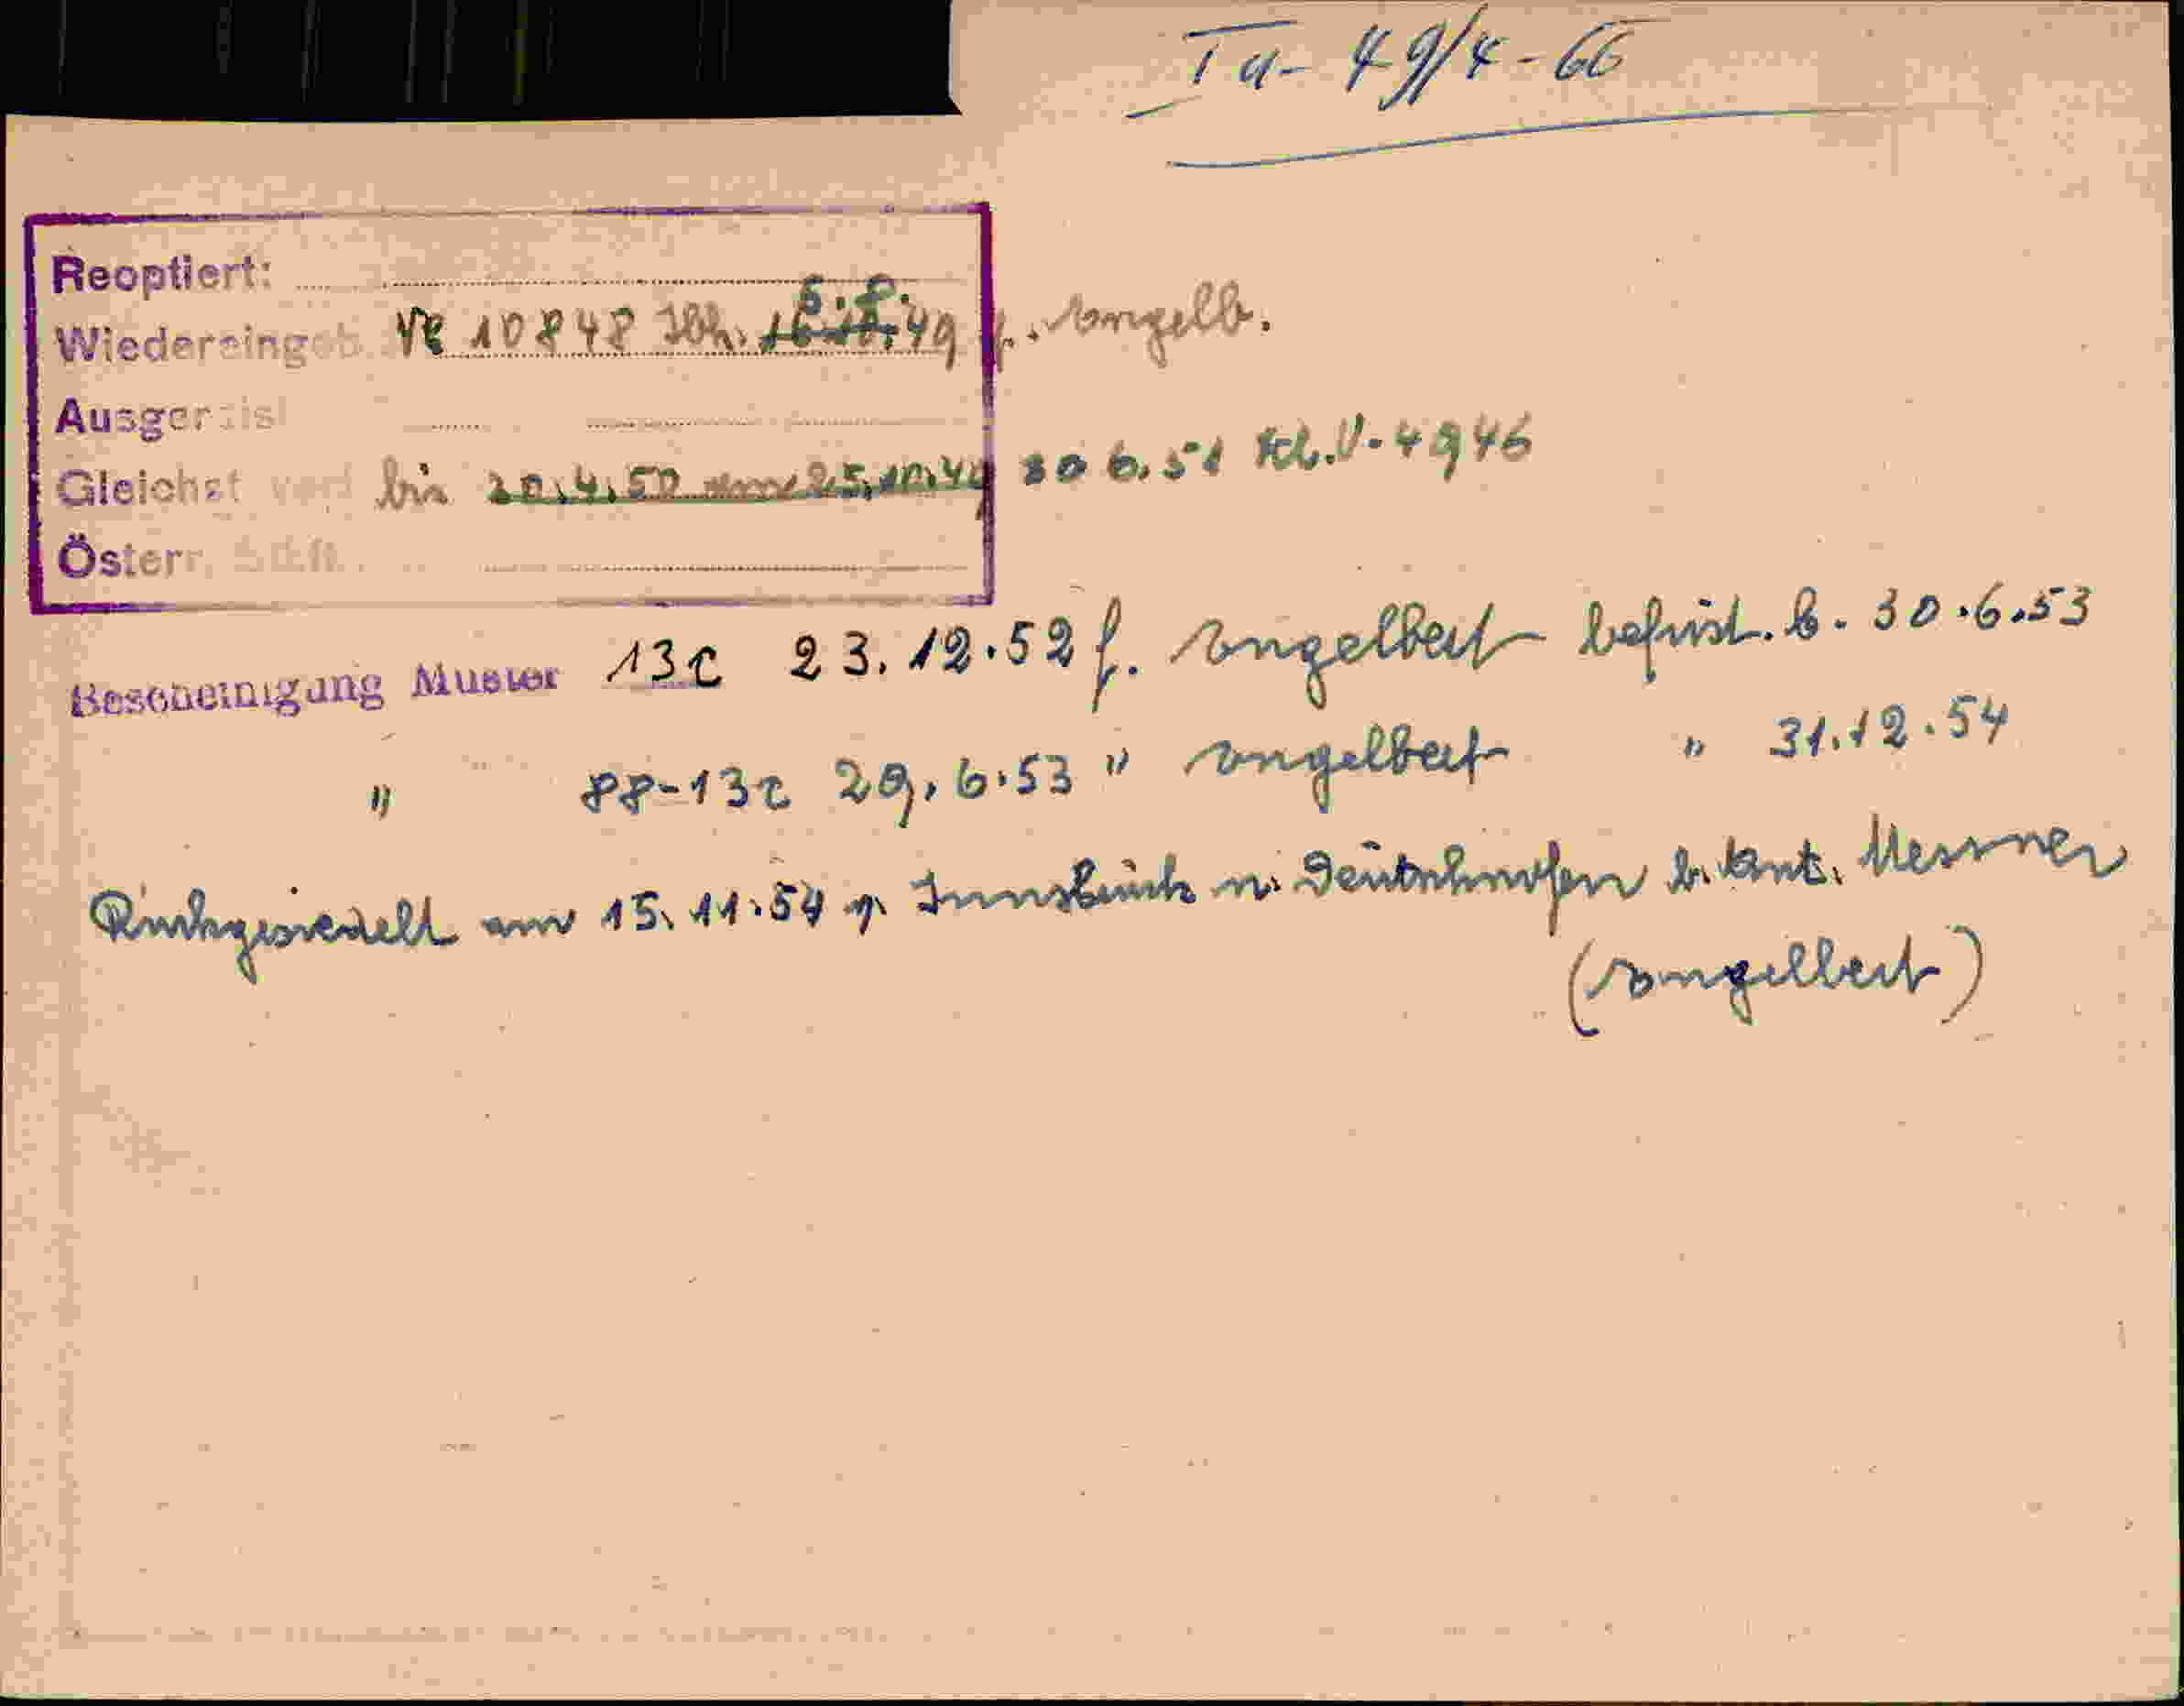 Ta- 49/4-66
Reoptiert:
Wiedereingeb. VR 10848 Ibk. 16.10.49 5.8. f. Engelb.
Ausger
Gleichst bis 20.4.50 vom 25.10.49 30 6.51 Kl.V-4946
Österr.
Bescheinigung Muster 13c 23.12.52 f. Engelbert befrist. b. 30.6.53
" 88-13c 29.6.53 " Engelbert " 31.12.54
Rückgesiedelt am 15.11.54 v. Innsbruck n. Deutschnofen b. Ant. Messner
(Engelbert)